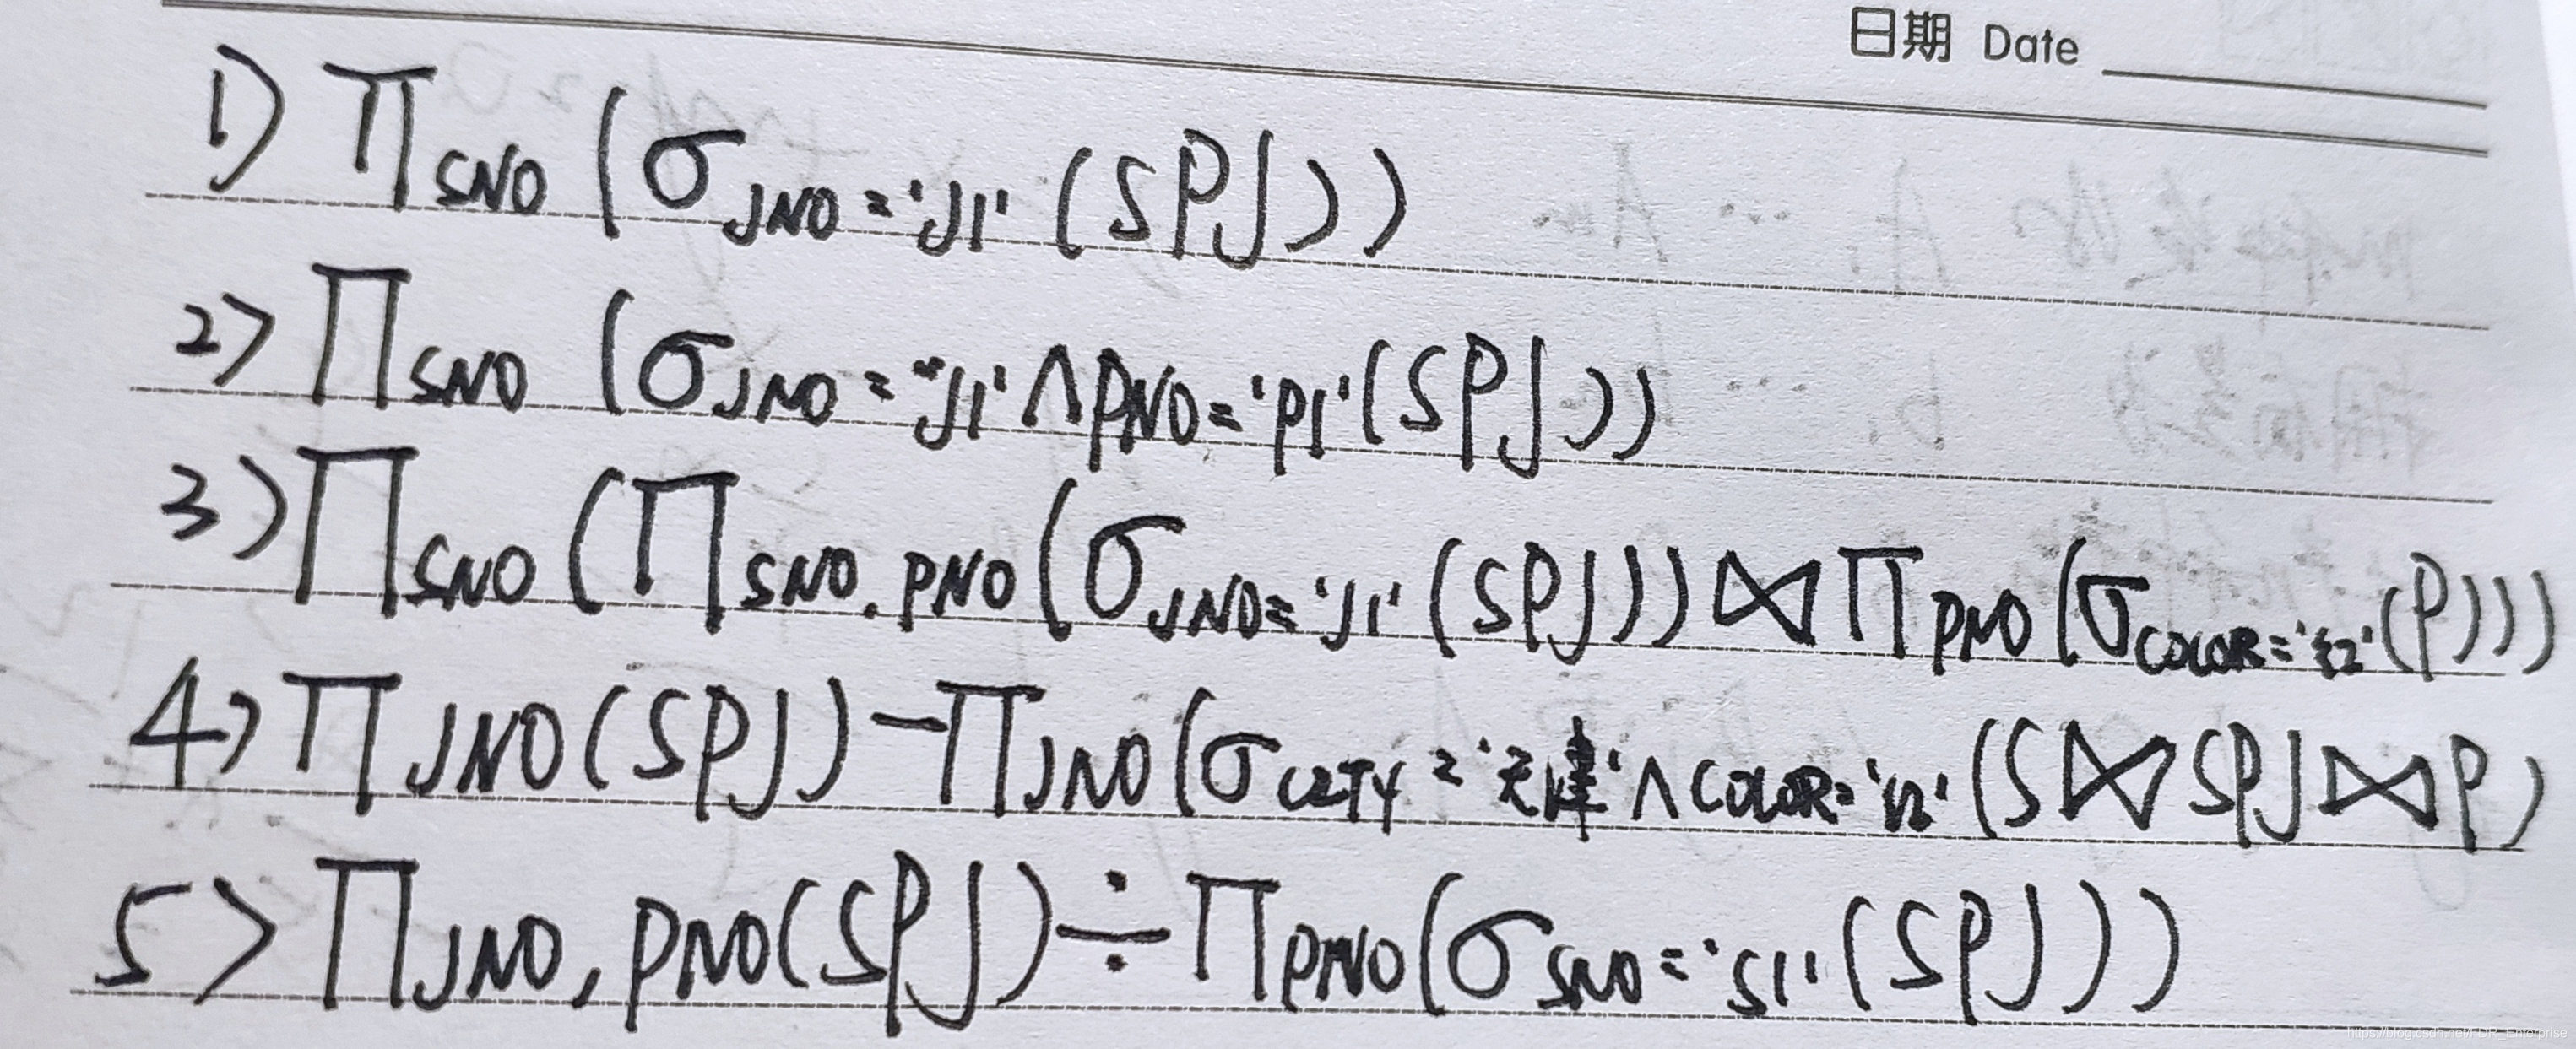 日期 Date
1) Π SNO (σ JNO='J1' (SPJ))
2) Π SNO (σ JNO='J1' ∧ PNO='P1' (SPJ))
3) Π SNO (Π SNO, PNO (σ JNO='J1' (SPJ)) ⋈ Π PNO (σ COLOR='红' (P)))
4) Π JNO (SPJ) - Π JNO (σ CITY='天津' ∧ COLOR='红' (S ⋈ SPJ ⋈ P)
5) Π JNO, PNO (SPJ) ÷ Π PNO (σ SNO='S1' (SPJ))